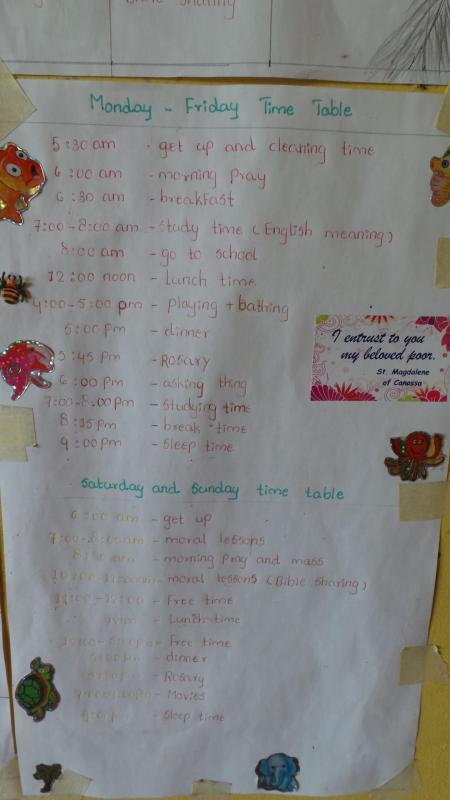 Bible sharing
Monday - Friday Time Table
5:30 am - get up and cleaning time
6:00 am - morning pray
6:30 am - breakfast
7:00-8:00 am - Study time (English meaning)
8:00 am - go to school
12:00 noon - Lunch time
4:00-5:00 pm - playing + bathing
5:00 pm - dinner
5:45 pm - Rosary
6:00 pm - asking thing
7:00-8:00 pm - Studying time
8:15 pm - break time
9:00 pm - Sleep time
I entrust to you
my beloved poor.
St. Magdalene
of Canossa
Saturday and Sunday time table
6:00 am - get up
7:00-8:00 am - moral lessons
am - morning pray and mass
10:00-11:00 am - moral lessons (Bible sharing)
- Free time
- Lunch time
- Free time
- dinner
- Rosary
- Movies
- Sleep time